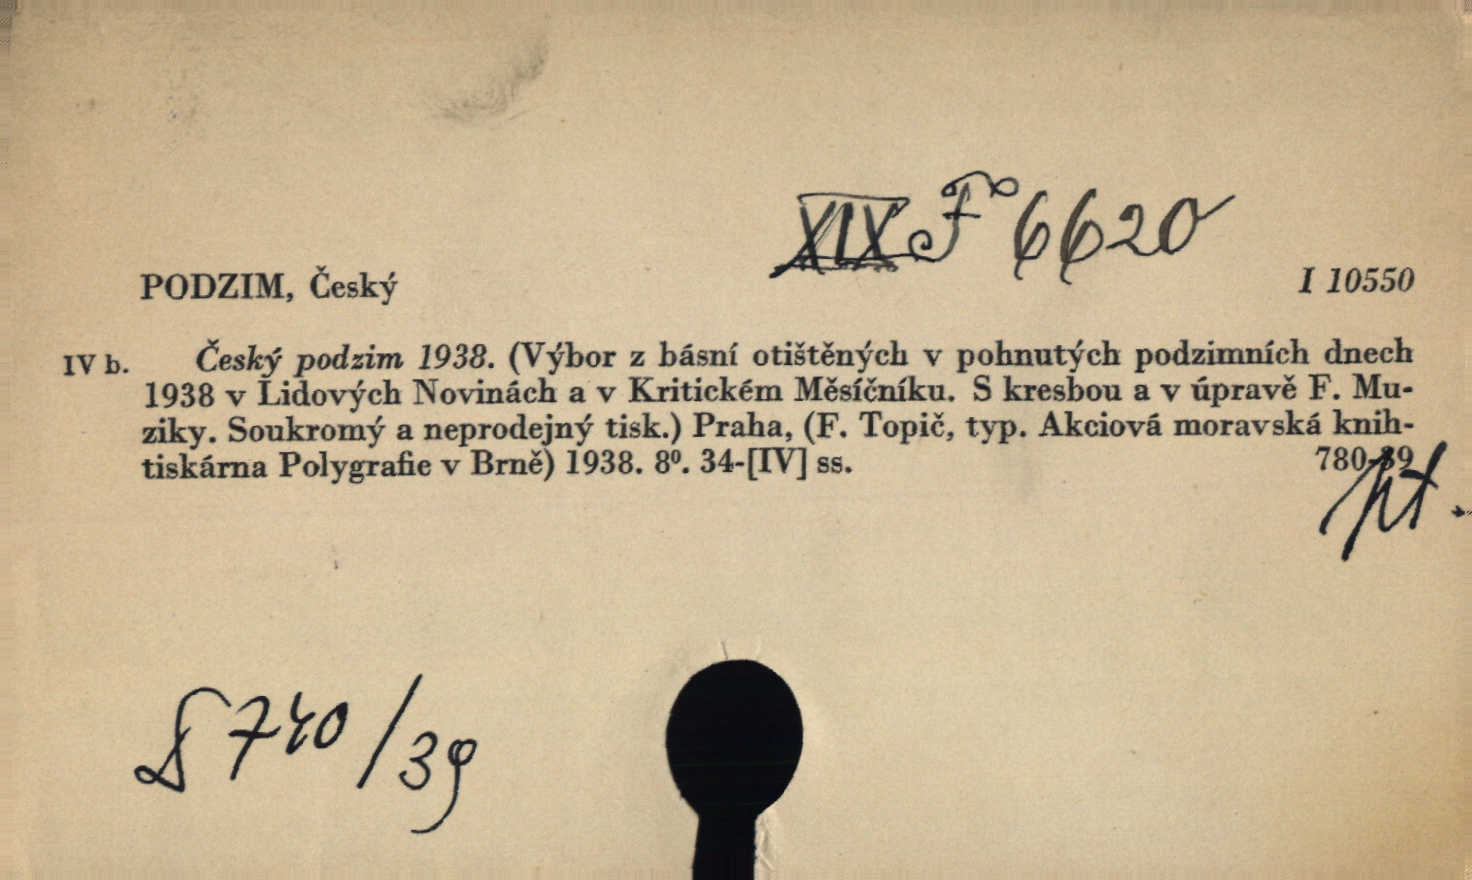 XIX F 6620
PODZIM, Český
I 10550
IV b. Český podzim 1938. (Výbor z básní otištěných v pohnutých podzimních dnech
1938 v Lidových Novinách a v Kritickém Měsíčníku. S kresbou a v úpravě F. Mu-
ziky. Soukromý a neprodejný tisk.) Praha, (F. Topič, typ. Akciová moravská knih-
tiskárna Polygrafie v Brně) 1938. 8⁰. 34-[IV] ss.
780-39
740/39